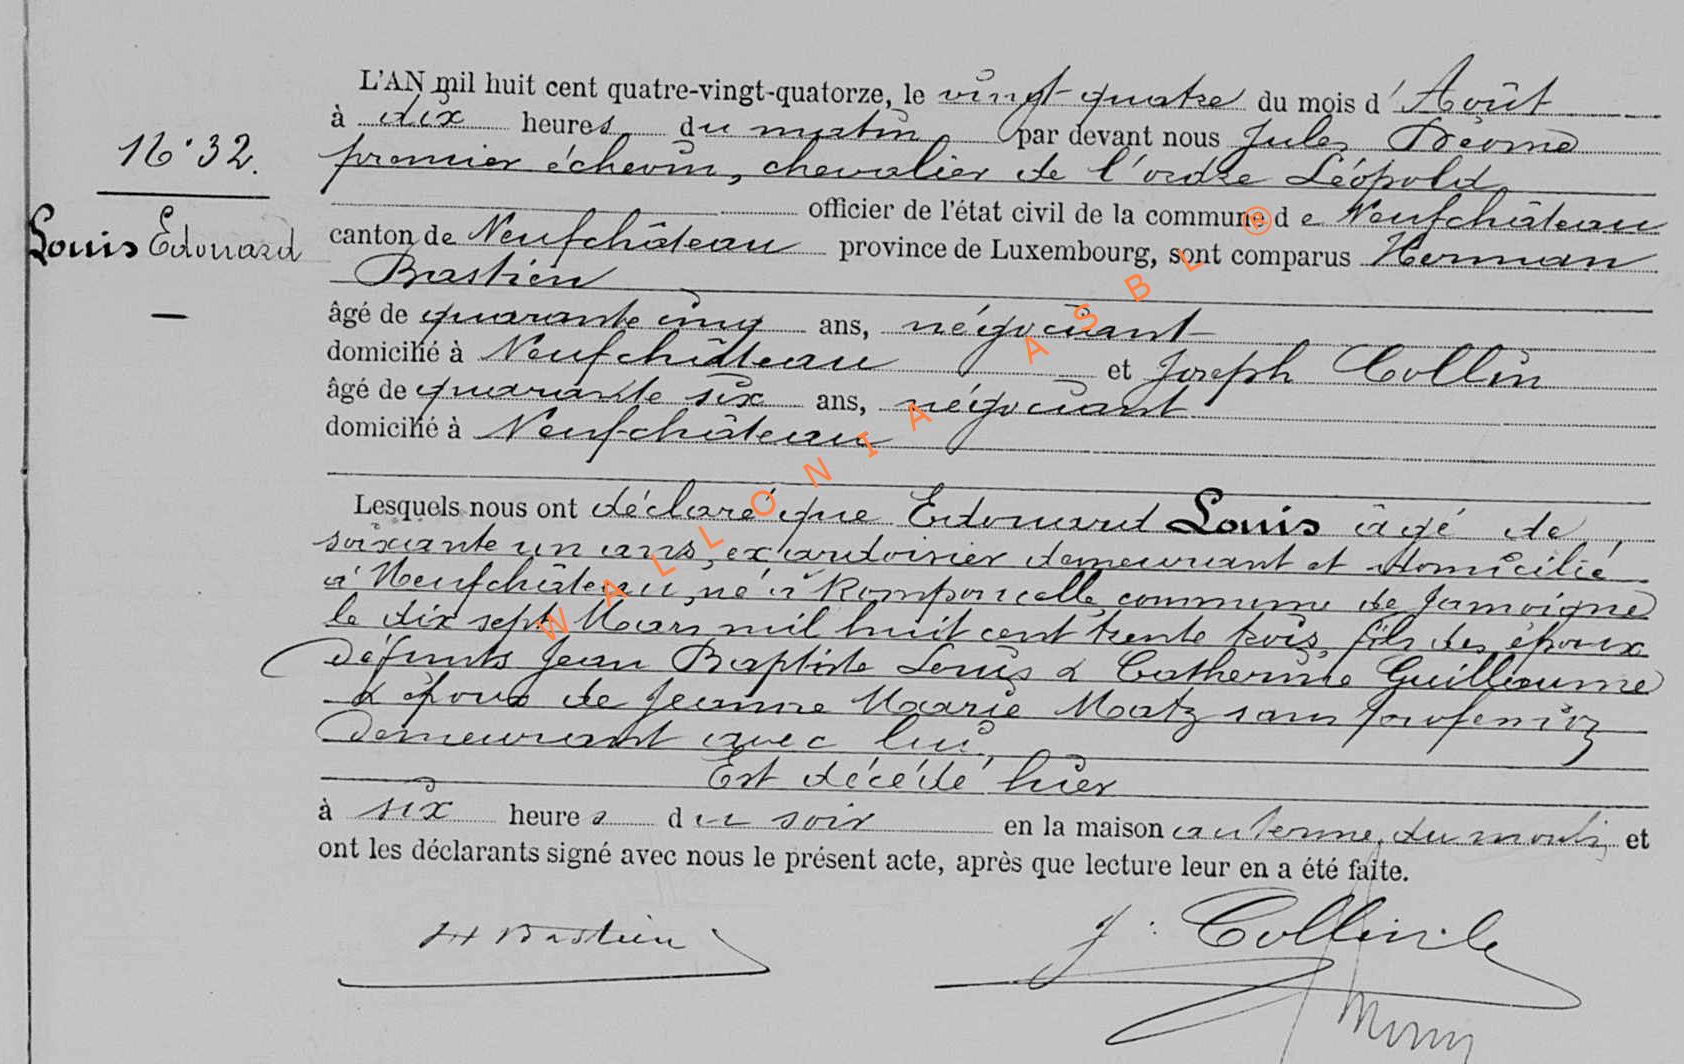 L'AN mil huit cent quatre-vingt-quatorze, le vingt quatre du mois d'Août
à dix heures du matin par devant nous Jules
N° 32.
premier échevin, chevalier de l'ordre Léopold,
officier de l'état civil de la commune de Neufchâteau
Louis Edouard
canton de Neufchâteau province de Luxembourg, sont comparus Herman
Bastien
âgé de quarante cinq ans, négociant
domicilié à Neufchâteau et Joseph Collin
âgé de quarante six ans, négociant
domicilié à Neufchâteau
Lesquels nous ont déclaré que Edouard Louis âgé de
soixante un ans, ex ardoisier demeurant et domicilié
à Neufchâteau, né à Romponcelle commune de Jamoigne
le dix sept Mars mil huit cent trente trois, fils des époux
défunts Jean Baptiste Louis & Catherine Guillaume
& époux de Jeanne Marie Matz sans profession
demeurant avec lui,
Est décédé hier
à six heures du soir en la maison du moulin et
ont les déclarants signé avec nous le présent acte, après que lecture leur en a été faite.
H Bastien
J. Collin
WALLONIA ASBL ©